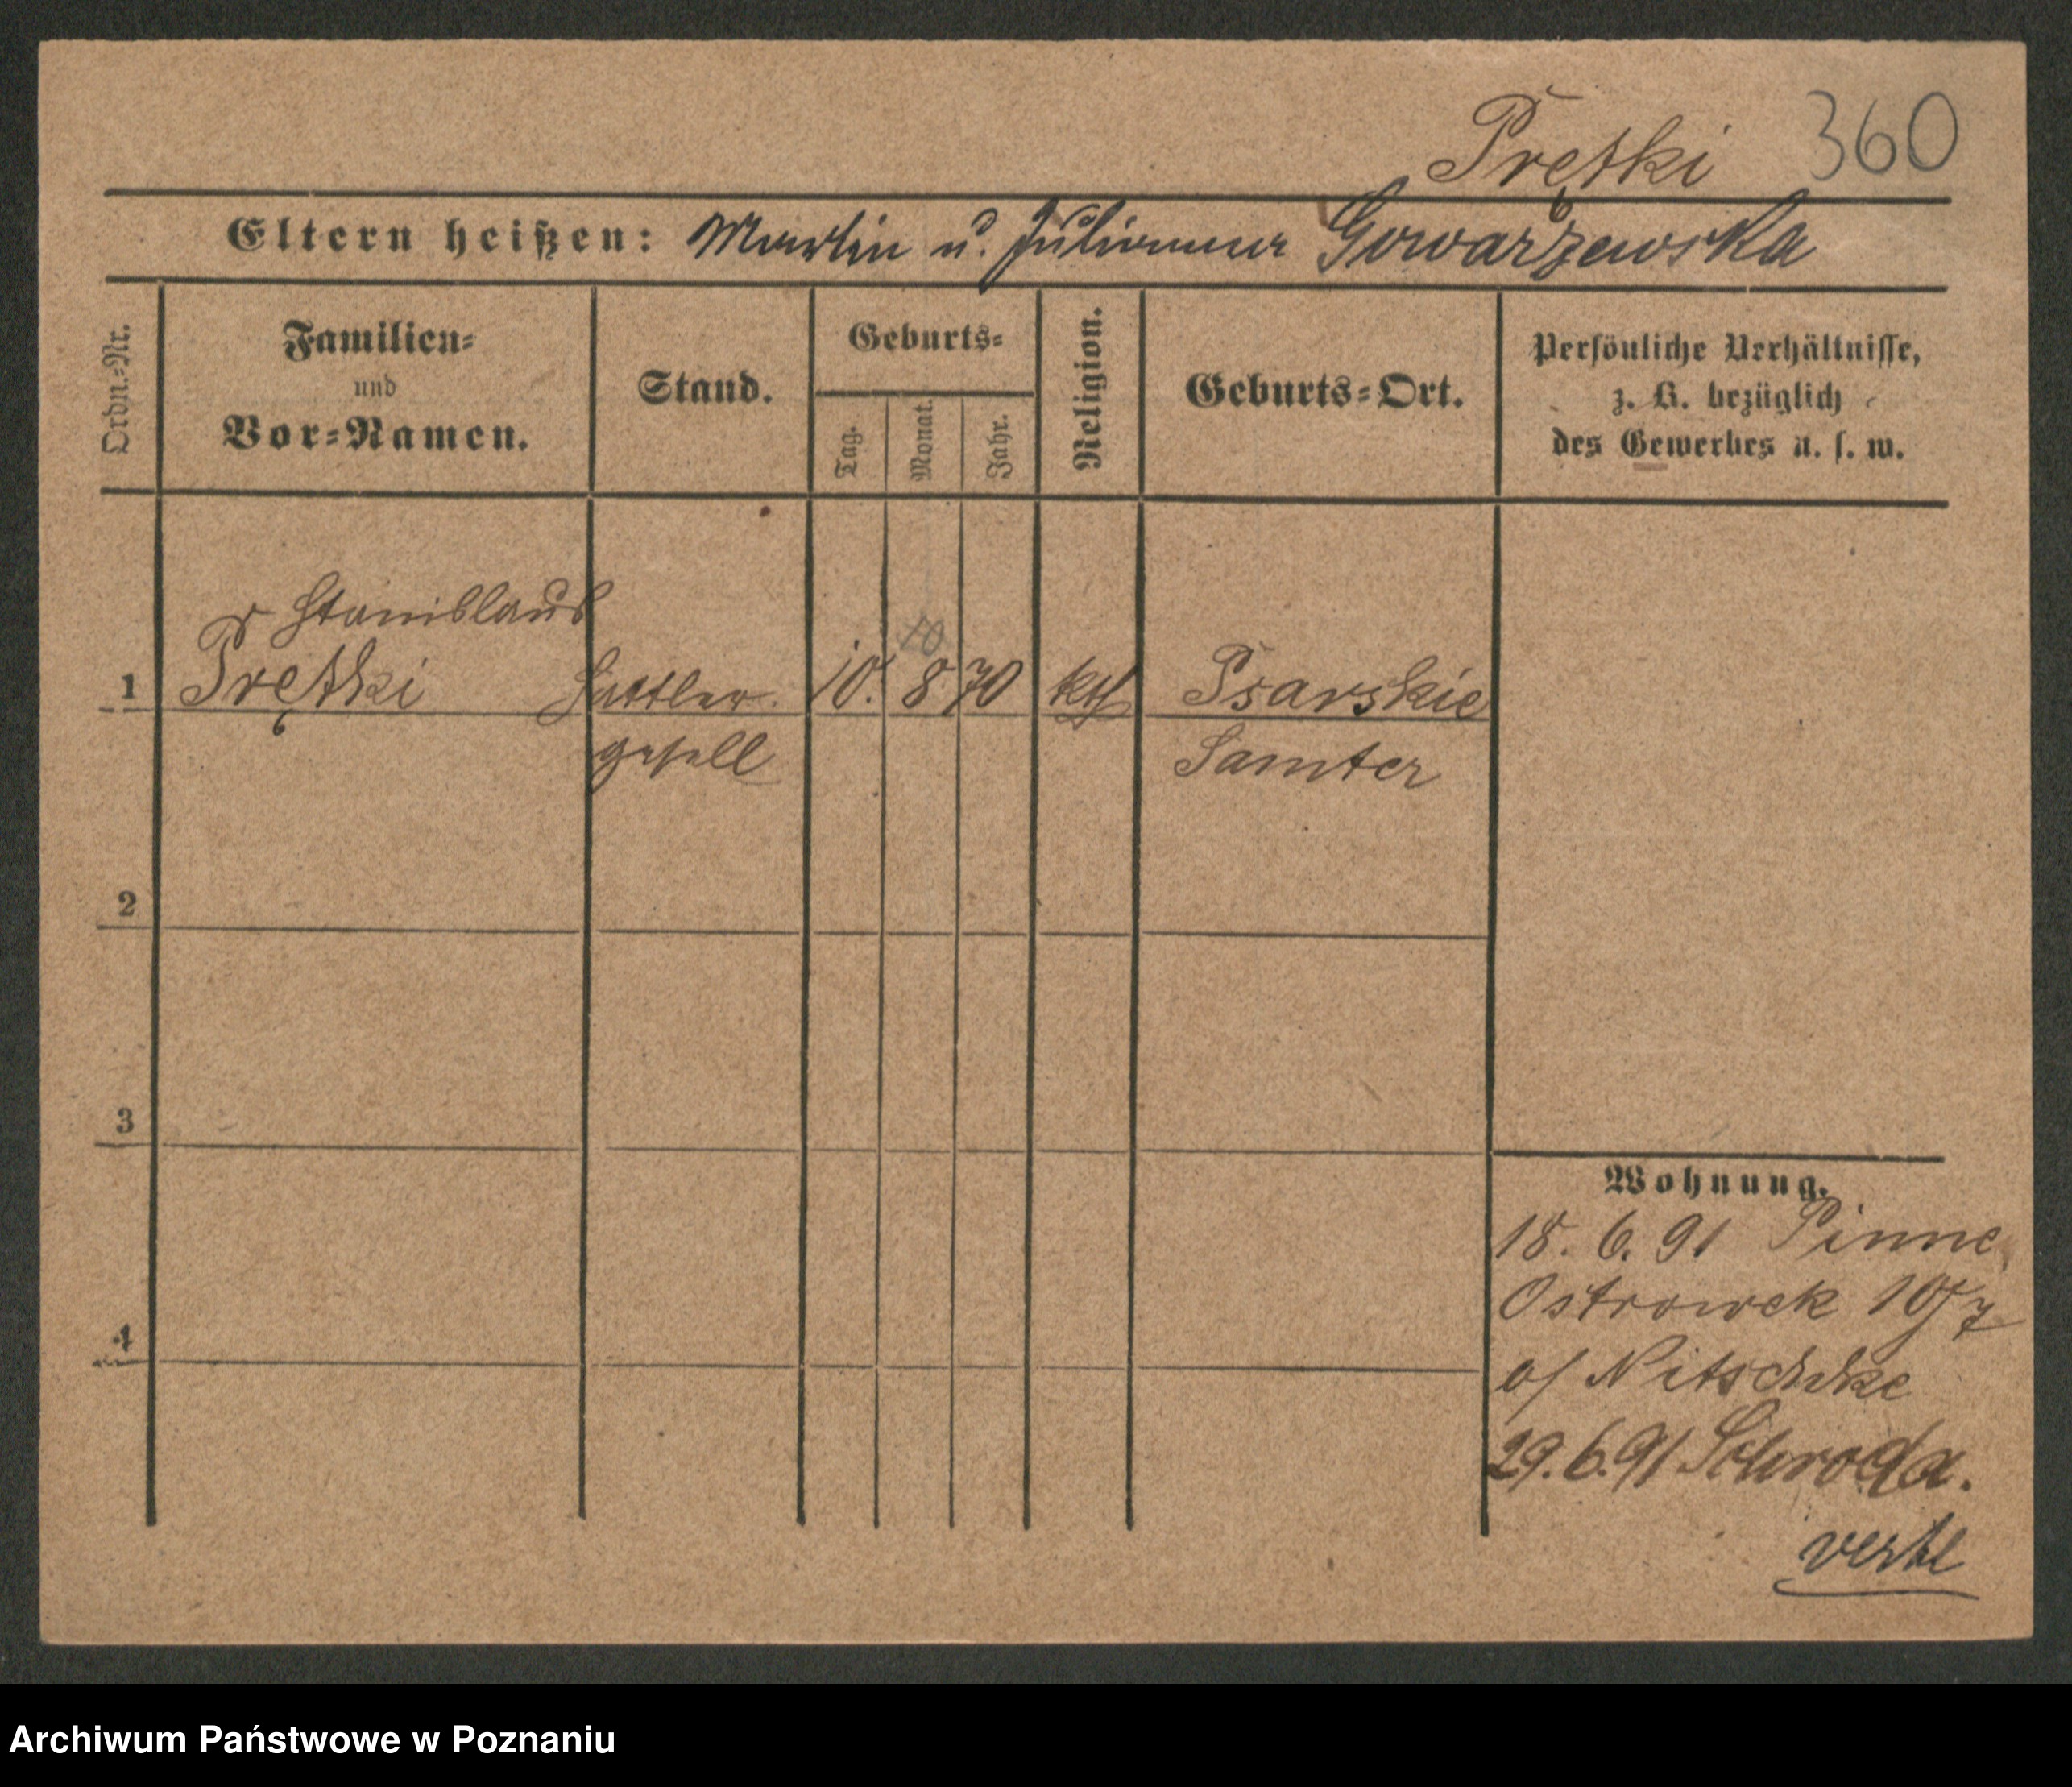 Prętki 360
Eltern heißen: Martin u. Julianna Gowarzewska
Ordn.-Nr.
Familien-
und
Vor-Namen.
Stand.
Geburts-
Tag.
Monat.
Jahr.
Religion.
Geburts-Ort.
Persönliche Verhältnisse,
z. B. bezüglich
des Gewerbes u. s. w.
Stanislaus
10
1 Prętki Sattler 10. 8 70 kth Psarskie
gesell Samter
2
3
4
Wohnung.
18. 6. 91 Pinne
Ostrowek
Nitschke
29.6.91 Schroda.
Archiwum Państwowe w Poznaniu